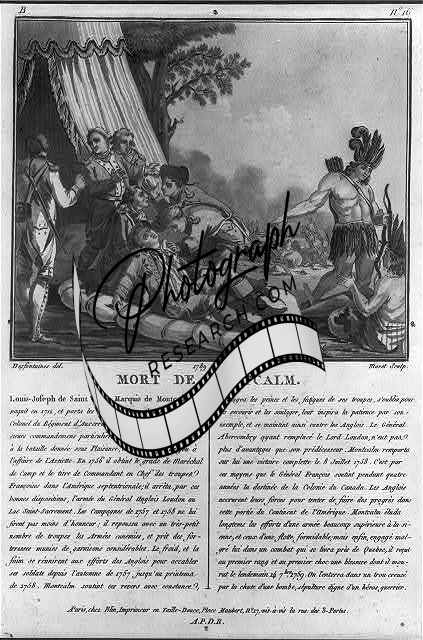 B
N.º 16
Desfontaines del.
1789
Moret Sculp.
Photograph
RESEARCH.COM
MORT DE CALM.
Louis-Joseph de Saint Marquis de Montc
naquit en 1712, et porta les
Colonel du Régiment d'Auxerr
sieurs commandemens particuliers
à la bataille donnée sous Plaisance
l'affaire de l'Assiette. En 1756 il obtint le grade de Maréchal
de Camp et le titre de Commandant en Chef des troupes
Françoises dans l'Amérique septentrionale; il arrêta, par ses
bonnes dispositions, l'armée du Général Anglois Loudon au
Lac Saint-Sacrement. Les Campagnes de 1757 et 1758 ne lui
firent pas moins d'honneur; il repoussa avec un très-petit
nombre de troupes les Armées ennemies, et prit des for-
teresses munies de garnisons considérables. Le froid, et la
faim se réunirent aux efforts des Anglois pour accabler
ses soldats depuis l'automne de 1757 jusqu'au printems
de 1758. Montcalm soutint ces revers avec constance,
les peines et les fatigues de ses troupes, s'oublia pour
secourir et les soulager, leur inspira la patience par son
exemple, et se maintint ainsi contre les Anglois. Le Général
Abercromby ayant remplacé le Lord Loudon, n'eut pas
plus d'avantages que son prédécesseur. Montcalm remporta
sur lui une victoire complette le 8 Juillet 1758. C'est par
ce moyens que le Général François soutint pendant quatre
années la destinée de la Colonie du Canada. Les Anglois
accrurent leurs forces pour tenter de faire des progrès dans
cette partie du Continent de l'Amérique. Montcalm éluda
longtems les efforts d'une armée beaucoup supérieure à la si-
enne, et ceux d'une flotte formidable; mais enfin, engagé mal-
gré lui dans un combat qui se livra près de Québec, il reçut
au premier rang et au premier choc une blessure dont il mou-
rut le lendemain 14 7bre 1759. On l'enterra dans un trou creusé
par la chute d'une bombe, sépulture digne d'un héros guerrier.
A Paris, chez Blin, Imprimeur en Taille-Douce, Place Maubert, N.º 17, vis-à-vis la rue des 3-Portes.
A.P.D.R.